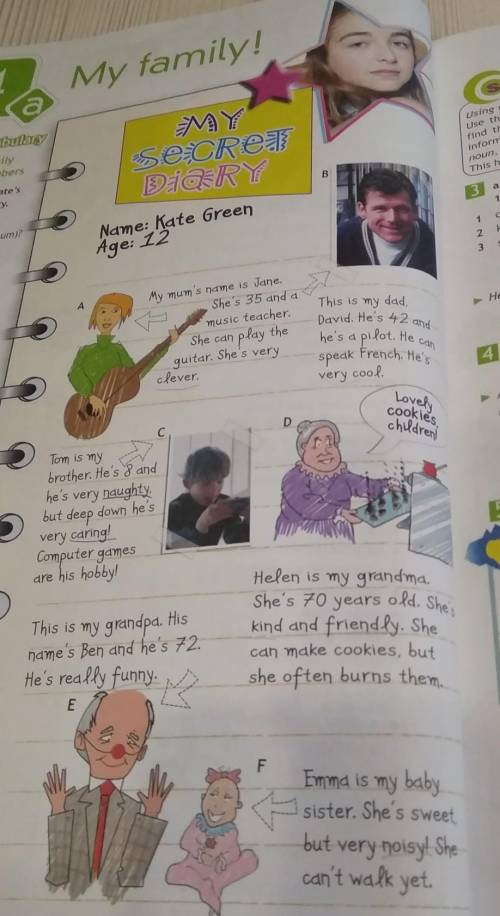 a
My family!
MY
SECRET
DIARY
Name: Kate Green
Age: 12
B
A
My mum's name is Jane.
She's 35 and a
music teacher.
She can play the
guitar. She's very
clever.
This is my dad,
David. He's 42 and
he's a pilot. He can
speak French. He's
very cool.
C
Tom is my
brother. He's 8 and
he's very naughty,
but deep down he's
very caring!
Computer games
are his hobby!
D
Lovely
cookies,
children!
Helen is my grandma.
She's 70 years old. She's
kind and friendly. She
can make cookies, but
she often burns them.
This is my grandpa. His
name's Ben and he's 72.
He's really funny.
E
F
Emma is my baby
sister. She's sweet
but very noisy! She
can't walk yet.
Using
Use th
find th
inform
noun,
This
3 a
1
1
2
3
He
4